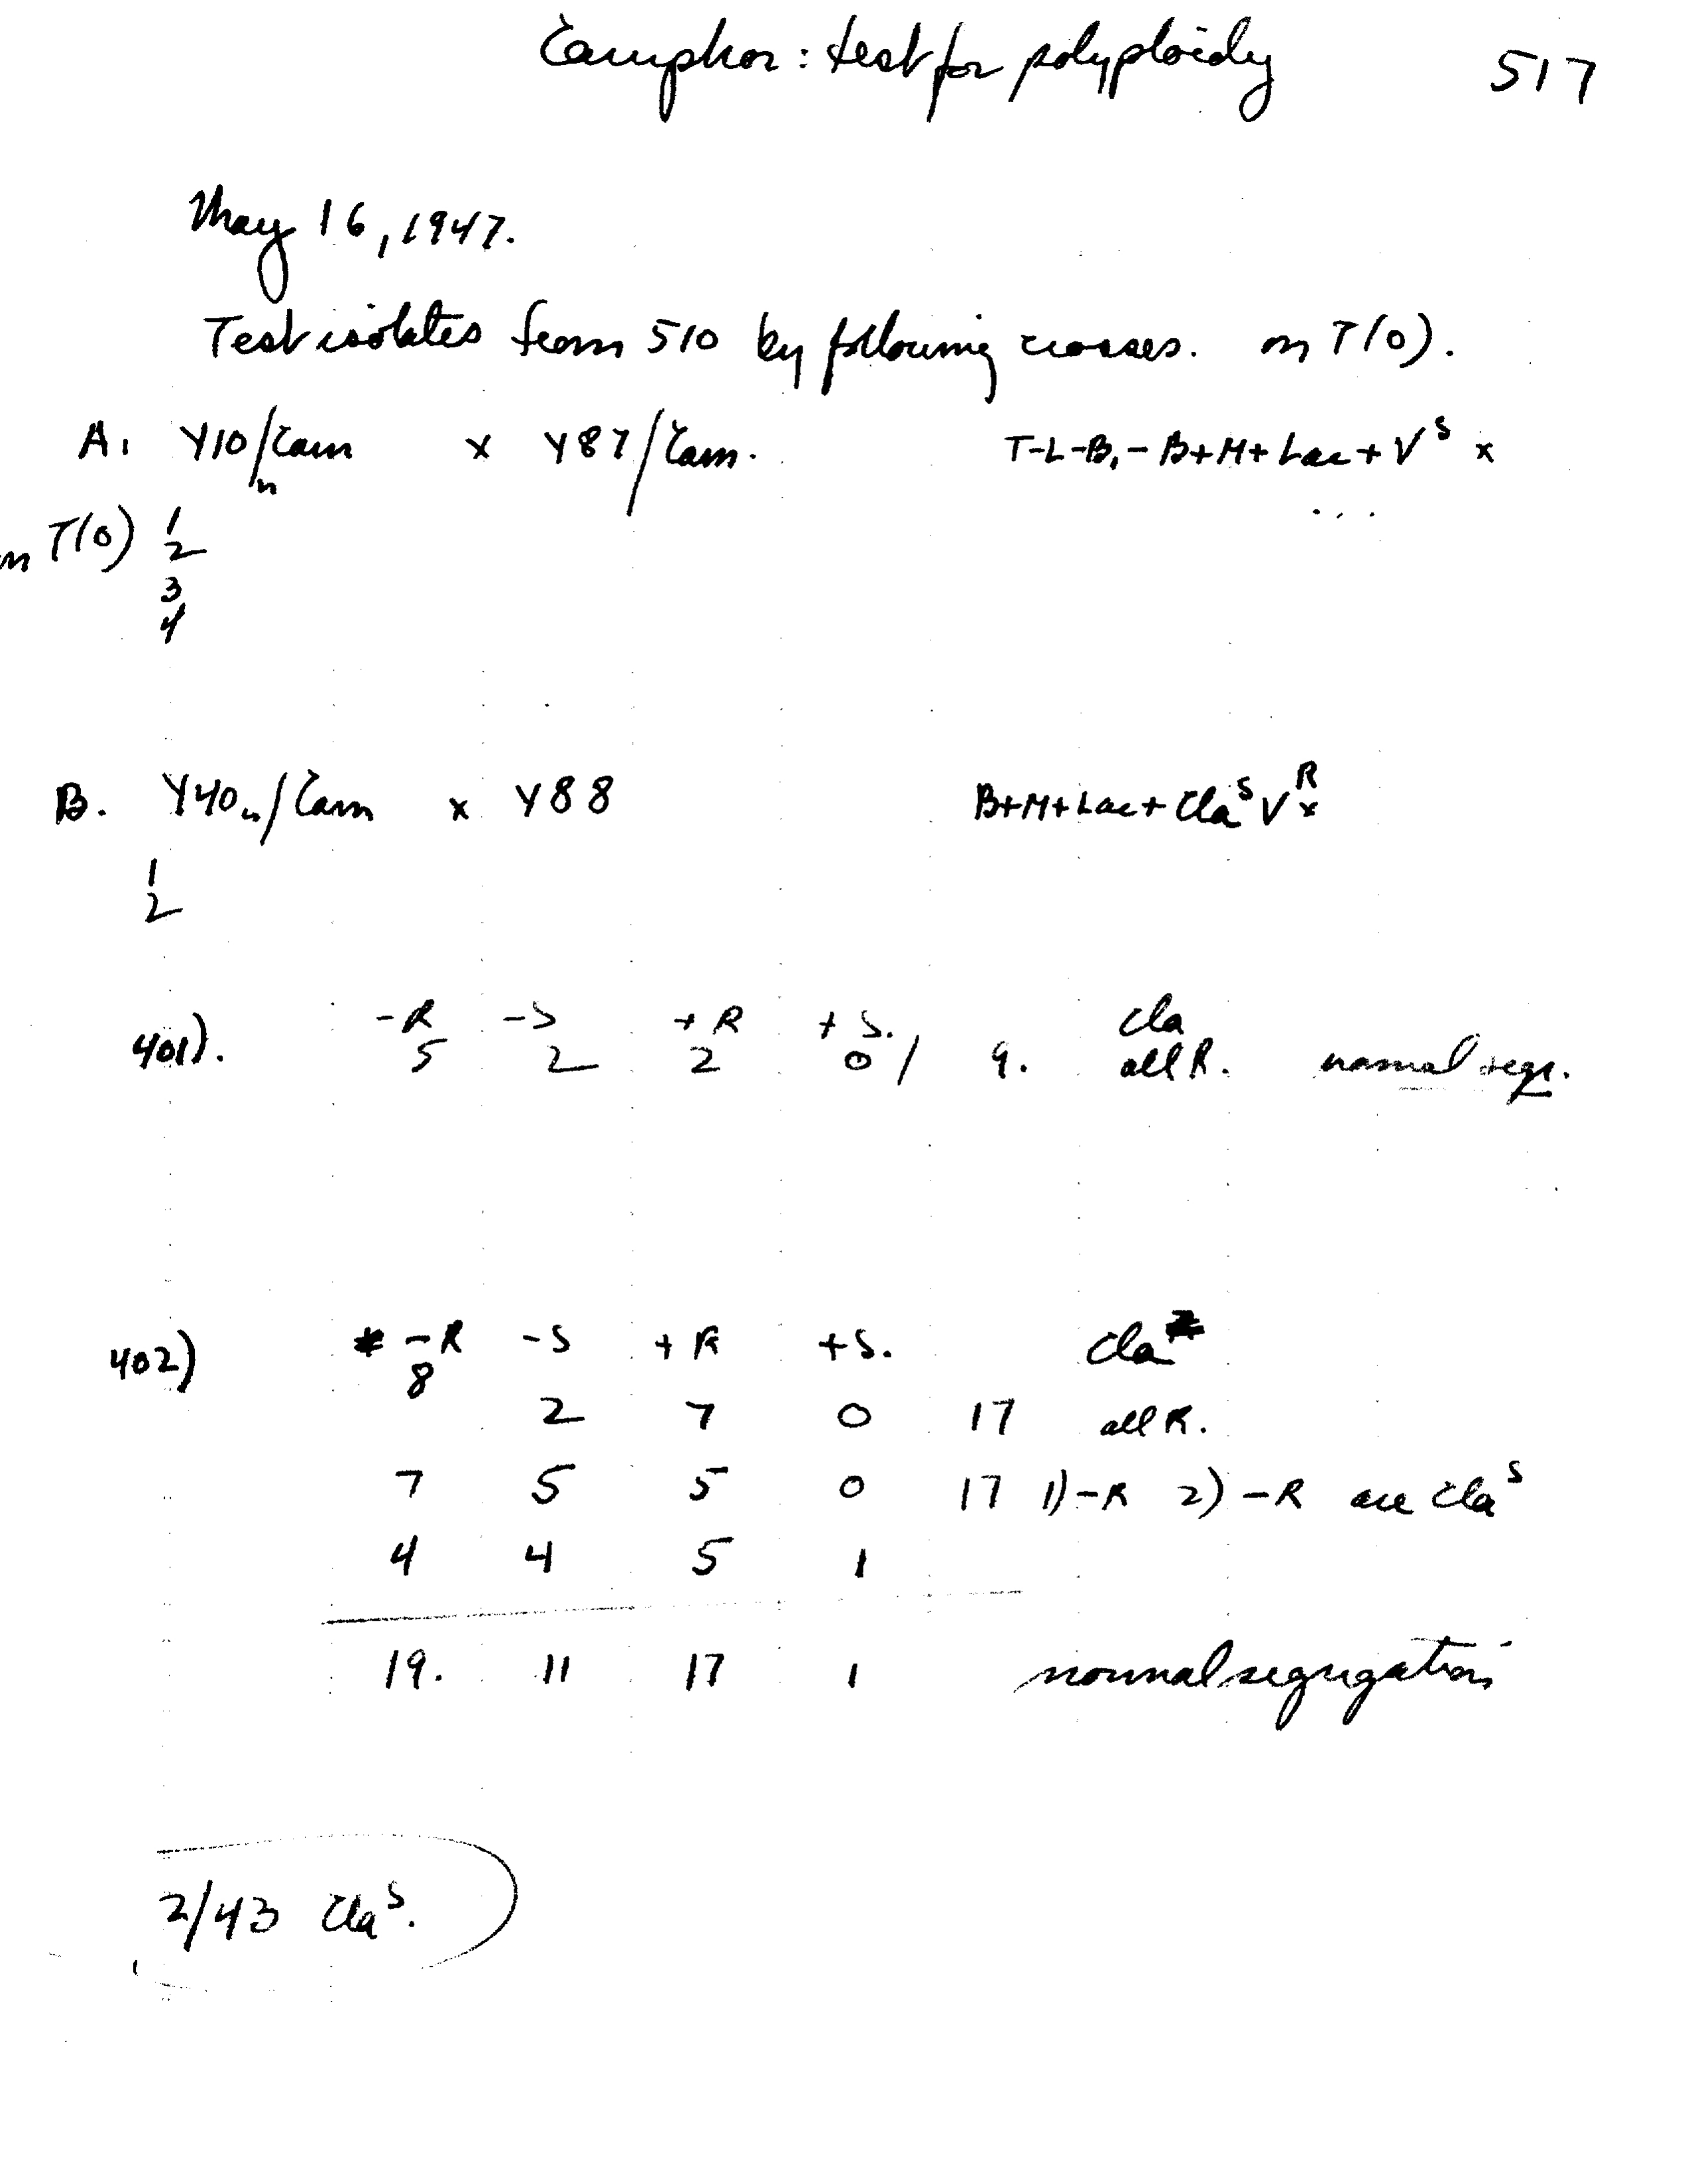 Camphor: test for polyploidy 517
May 16, 1947.
Test isolates from 510 by following crosses. on T(0).
A. Y10/Cam x Y87/Cam. T-L-B₁- B+M+Lac+V^S x
n ...
on T(0) 1
2
3
4
B. Y40n/Cam x Y88 B+M+Lac+Cla^S V^R x
1
2
-R -S +R +S. Cla
401). 5 2 2 0 / 9. all R. normal segr.
402) -R -S +R +S. Cla
8
2 7 0 17 all R.
7 5 5 0 17 1) -R 2) -R are Cla^S
4 4 5 1
19. 11 17 1 normal segregation
2/43 Cla^S.